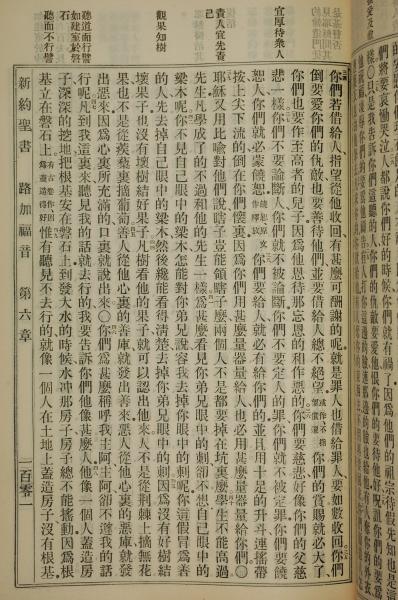 宜厚待衆人
責人宜先責己
觀果知樹
聽道而行譬如建室於磐石
聽而不行譬
們將要哀慟哭泣人都說你們好的時候你們就有禍了因爲他們的祖宗待假先知也是這
你們若借給人指望從他收囘有甚麼可酬謝的呢就是罪人也借給罪人要如數收囘你們
倒要愛你們的仇敵也要善待他們並要借給人總不絕望你們的賞賜就必大了
你們也要作至高者的兒子因爲他恩待那忘恩的和作惡的你們要慈悲好像你們的父慈
悲一樣你們不要論斷人你們就不被論斷你們不要定人的罪你們就不被定罪你們要饒
恕人你們就必蒙饒恕饒恕原文作釋放你們要給人就必有給你們的並且用十足的升斗連搖帶
按上尖下流的倒在你們懷裏因爲你們用甚麼量器量給人也必用甚麼量器量給你們○
耶穌又用比喻對他們說瞎子豈能領瞎子麼兩個人不是都要掉在坑裏麼學生不能高過
先生凡學成了的不過和他的先生一樣爲甚麼看見你弟兄眼中的刺卻不想自己眼中的
梁木呢你不見自己眼中的梁木怎能對你弟兄說容我去掉你眼中的刺呢你這假冒爲善
的人先去掉自己眼中的梁木然後纔能看得清楚去掉你弟兄眼中的刺因爲沒有好樹結
壞果子也沒有壞樹結好果子凡樹看他的果子就可以認出他來人不是從荆棘上摘無花
果也不是從蒺藜裏摘葡萄善人從他心裏的善庫就發出善來惡人從他心裏的惡庫就發
出惡來因爲心裏所充滿的口裏就說出來○你們爲甚麼稱呼我主阿主阿卻不遵我的話
行呢凡到我這裏來聽見我的話就去行的我要告訴你們他像甚麼人他像一個人蓋造房
子深深的挖地把根基安在磐石上到發大水的時候水冲那房子房子總不能搖動因爲根
基立在磐石上有古卷作因爲蓋造得好惟有聽見不去行的就像一個人在土地上蓋造房子沒有根基
新約聖書 路加福音 第六章 百零一